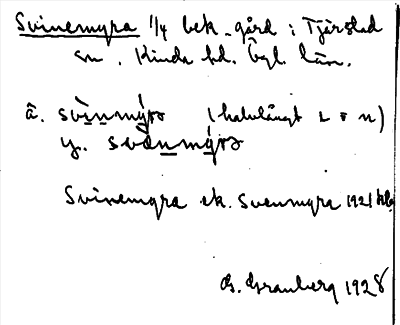 Svinemyra 1/4 bek. gård i Tjärstad
sn. Kinda hd. Ögl. län.
â. svìnmýrə (halvlångt ɩ o n)
y. svenmýrə
Svinemyra ek. Svenmyra 1921 Kb
G. Granberg 1928